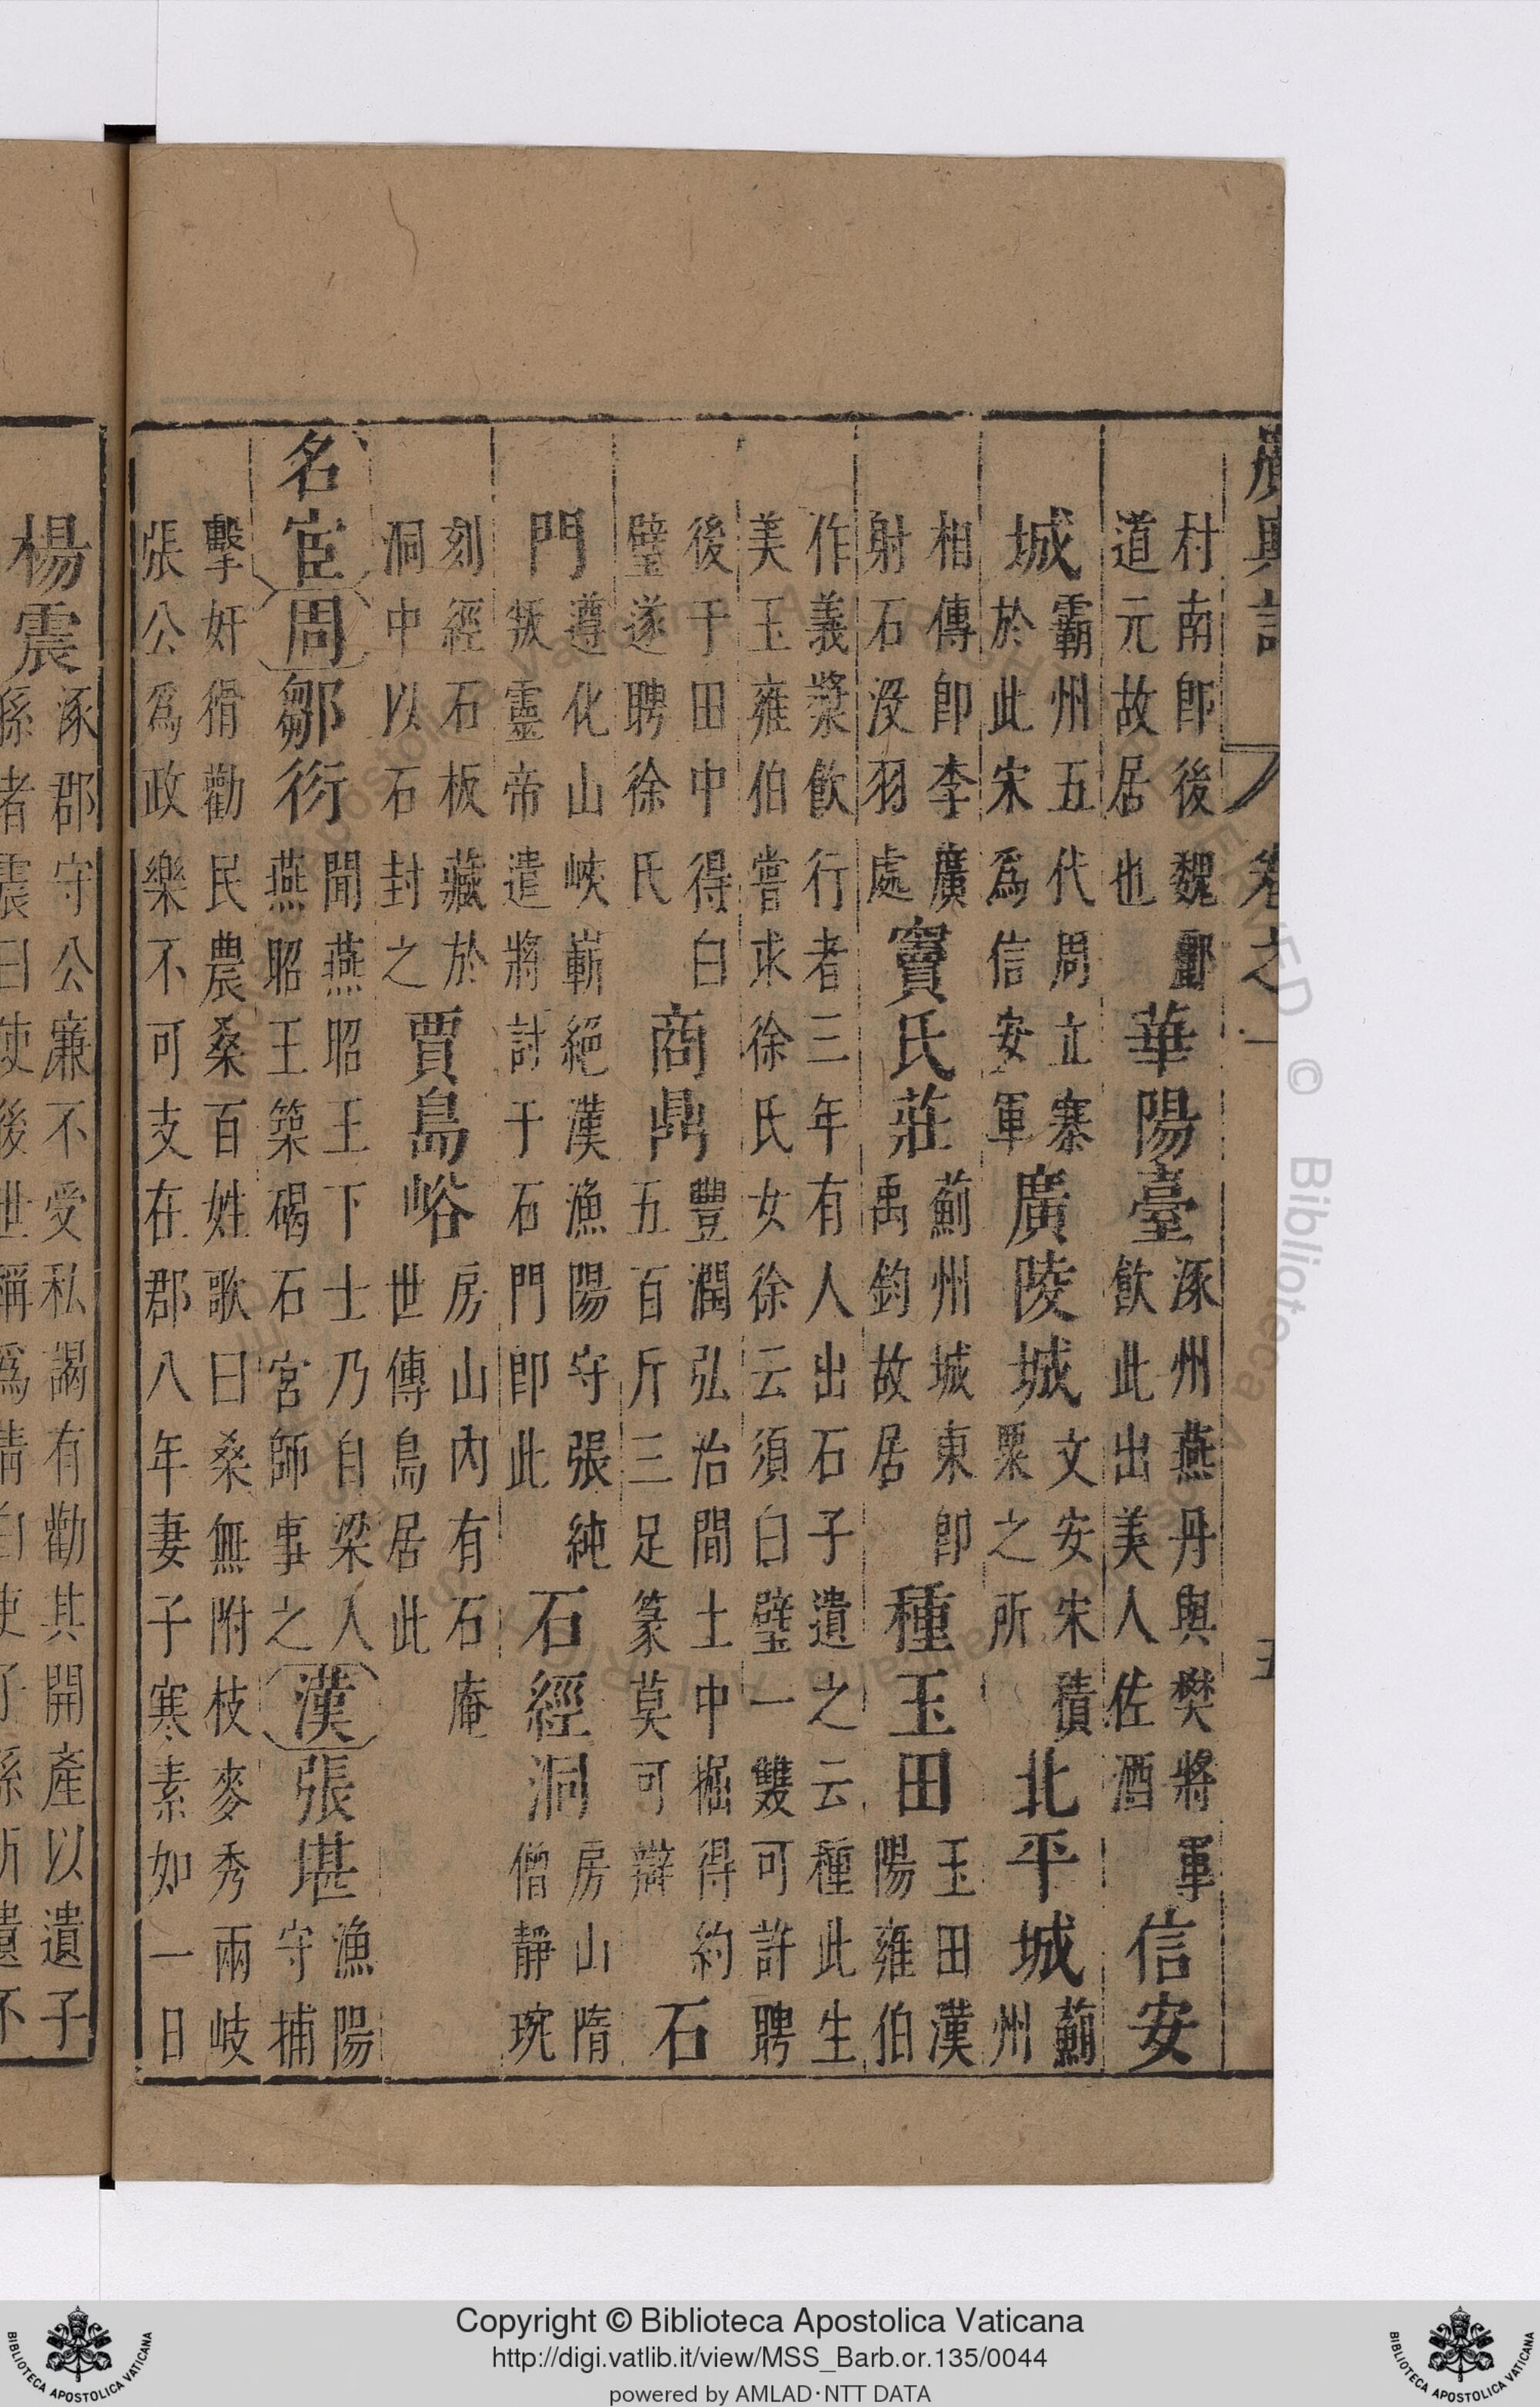 廣輿記 卷之一 五
村南卽後魏酈道元故居也華陽臺涿州燕丹與樊將軍飲此出美人佐酒信安
城霸州五代周立寨於此宋爲信安軍廣陵城文安宋積粟之所北平城薊州
相傳卽李廣射石没羽處竇氏莊薊州城東卽禹鈞故居種玉田玉田漢陽雍伯
作義漿飲行者三年有人出石子遺之云種此生美玉雍伯嘗求徐氏女徐云須白璧一雙可許聘
後于田中得白璧遂聘徐氏商鼎豐潤弘治間土中掘得約五百斤三足篆莫可辯石
門遵化山峽嶄絕漢漁陽守張純叛靈帝遣將討于石門卽此石經洞房山隋僧靜琬
刻經石板藏於洞中以石封之賈島峪房山內有石庵世傳島居此
名宦周鄒衍聞燕昭王下士乃自梁人燕昭王築碣石宮師事之漢張堪漁陽守捕
擊奸猾勸民農桑百姓歌曰桑無附枝麥秀兩岐張公爲政樂不可支在郡八年妻子寒素如一日
楊震涿郡守公廉不受私謁有勸其開產以遺子孫者震曰使後世稱爲清白吏子孫所遺不
Copyright © Biblioteca Apostolica Vaticana
http://digi.vatlib.it/view/MSS_Barb.or.135/0044
powered by AMLAD·NTT DATA
BIBLIOTECA APOSTOLICA VATICANA
BIBLIOTECA APOSTOLICA VATICANA